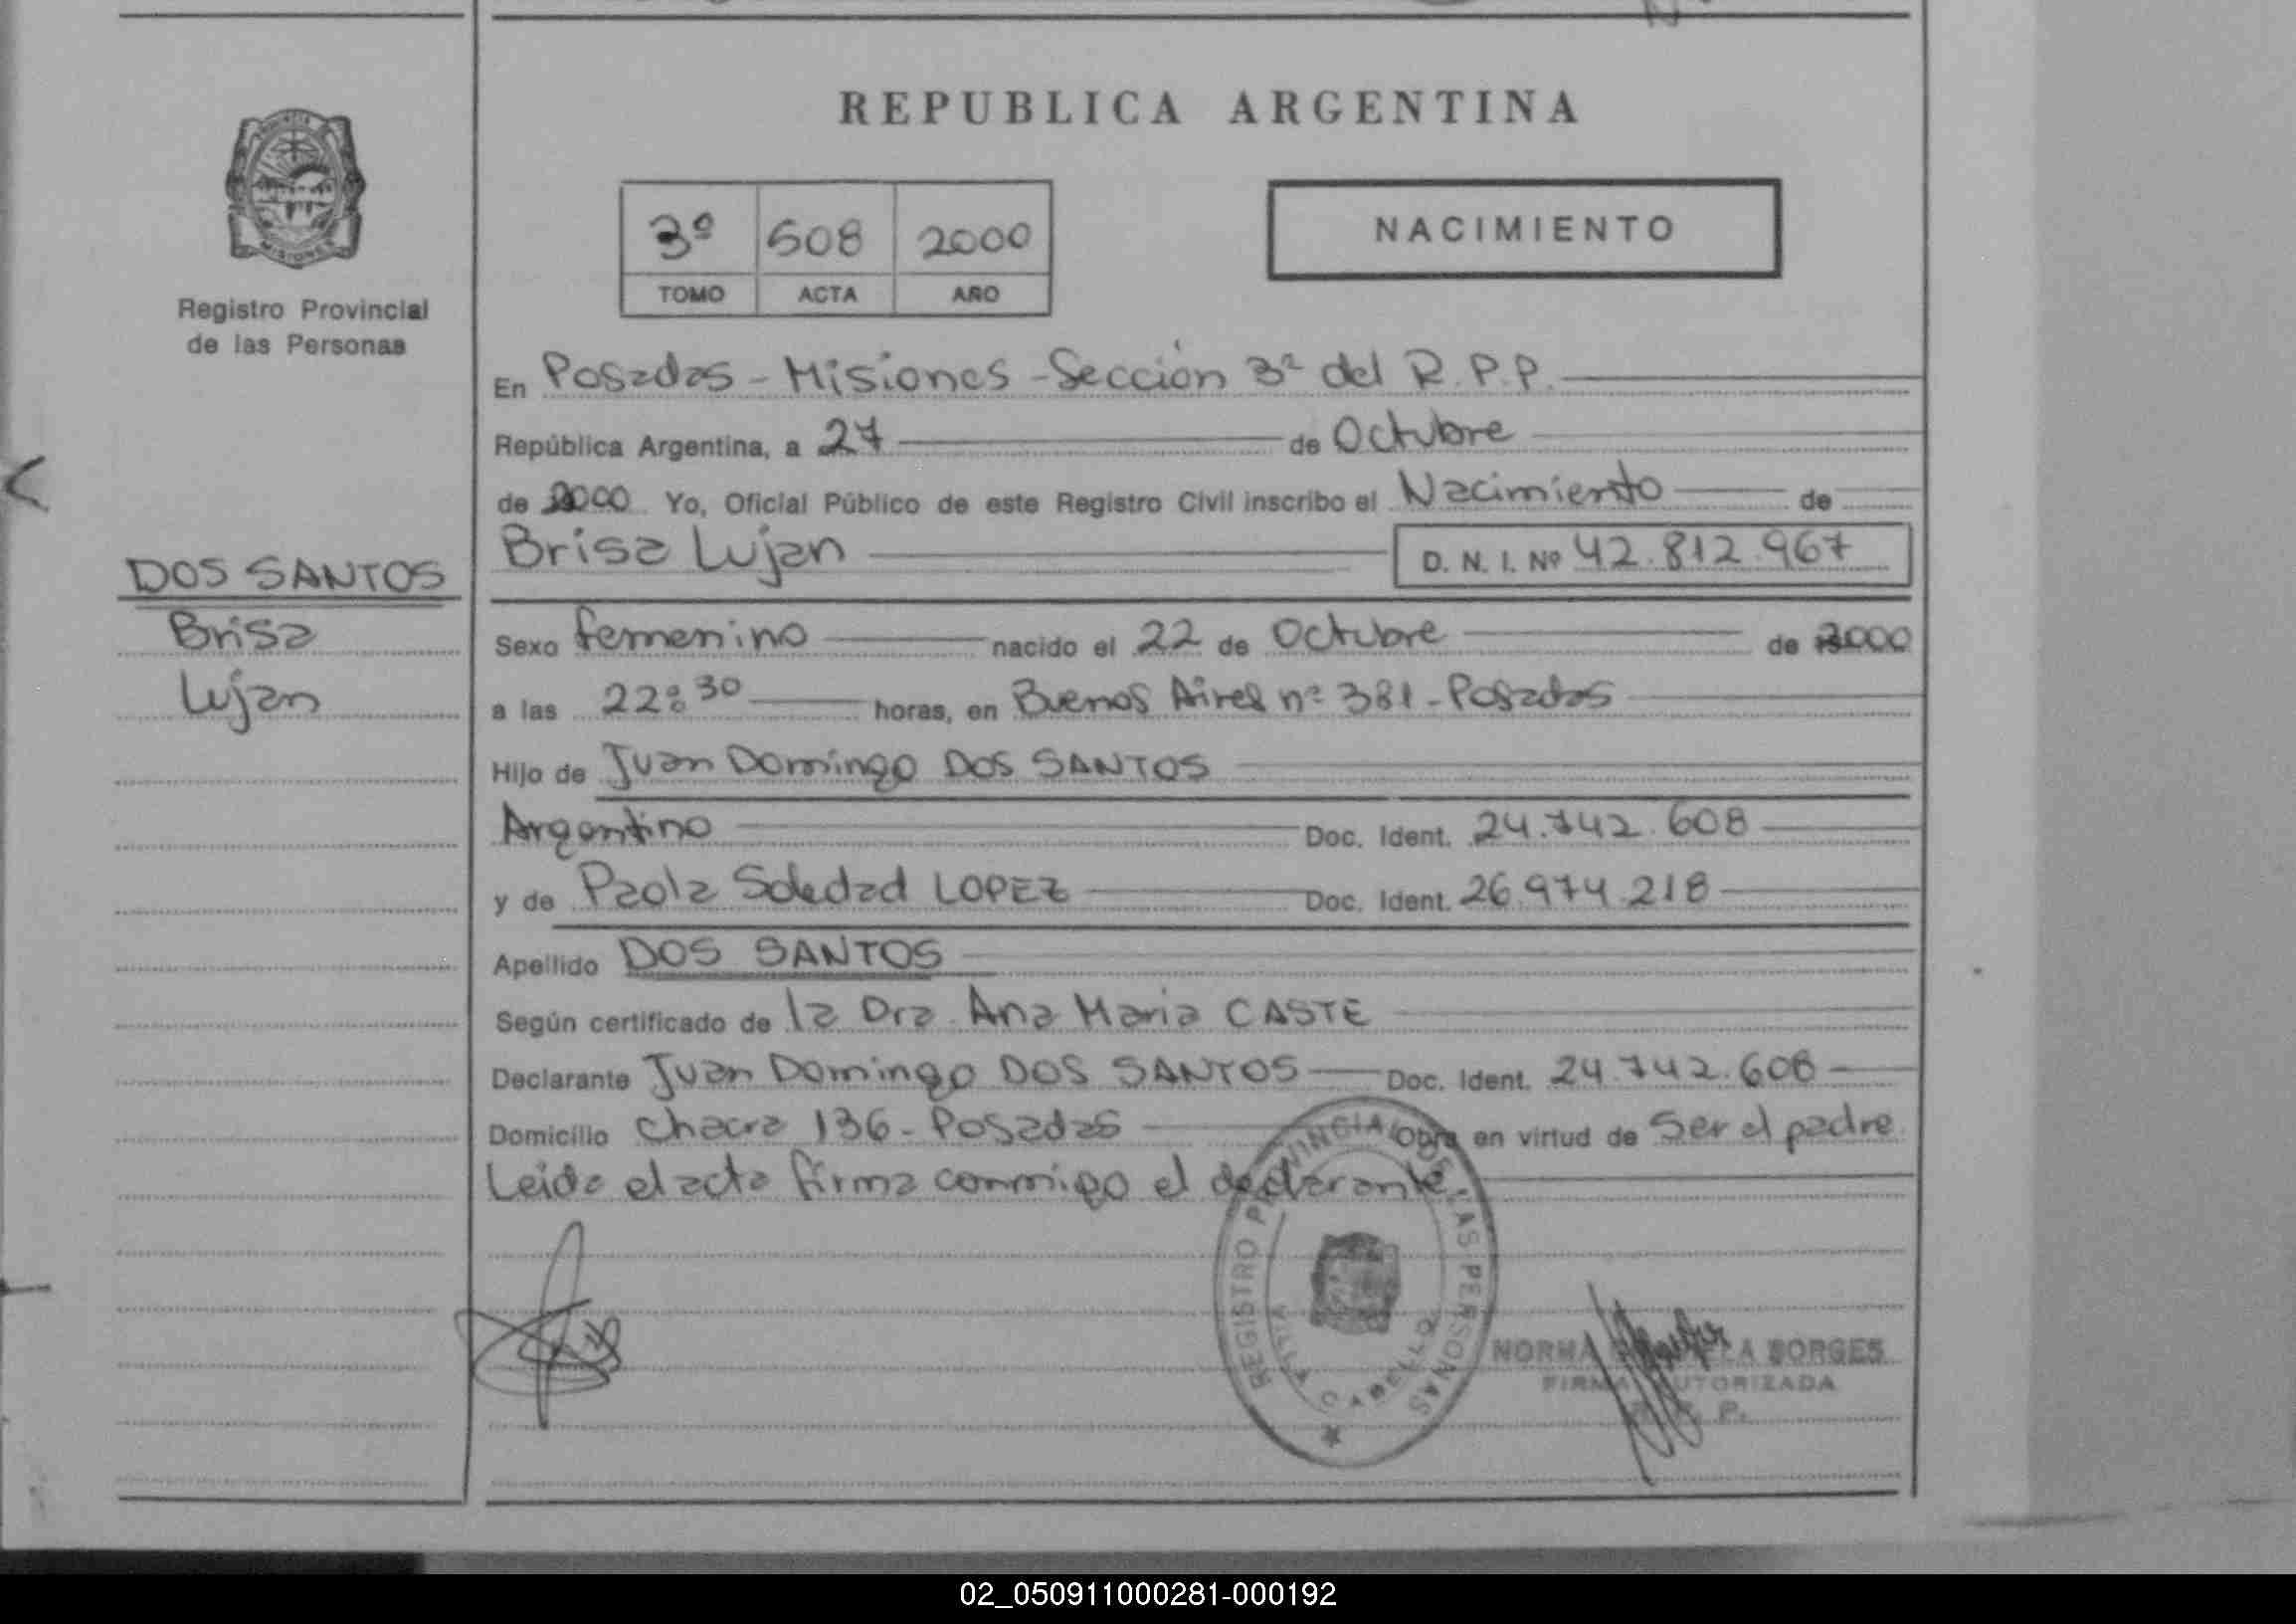 REPUBLICA ARGENTINA
PROVINCIA DE
MISIONES
Registro Provincial
de las Personas
3º 508 2000
TOMO ACTA AÑO
NACIMIENTO
En Posadas - Misiones - Sección 3ª del R.P.P.
República Argentina, a 27 de Octubre
de 2000 Yo, Oficial Público de este Registro Civil inscribo el Nacimiento de
Brisa Lujan D. N. I. Nº 42.812.967
DOS SANTOS
Brisa
Lujan
Sexo femenino nacido el 22 de Octubre de 2000
a las 22:30 horas, en Buenos Aires nº 381 - Posadas
Hijo de Juan Domingo DOS SANTOS
Argentino Doc. Ident. 24.742.608
y de Paola Soledad LOPEZ Doc. Ident. 26.974.218
Apellido DOS SANTOS
Según certificado de la Dra. Ana Maria CASTE
Declarante Juan Domingo DOS SANTOS Doc. Ident. 24.742.608
Domicilio Chacra 136 - Posadas Obra en virtud de Ser el padre
Leida el acta firma conmigo el declarante
REGISTRO PROVINCIAL DE LAS PERSONAS
VILLA CABELLO
NORMA BORGES
FIRMA AUTORIZADA
02_050911000281-000192